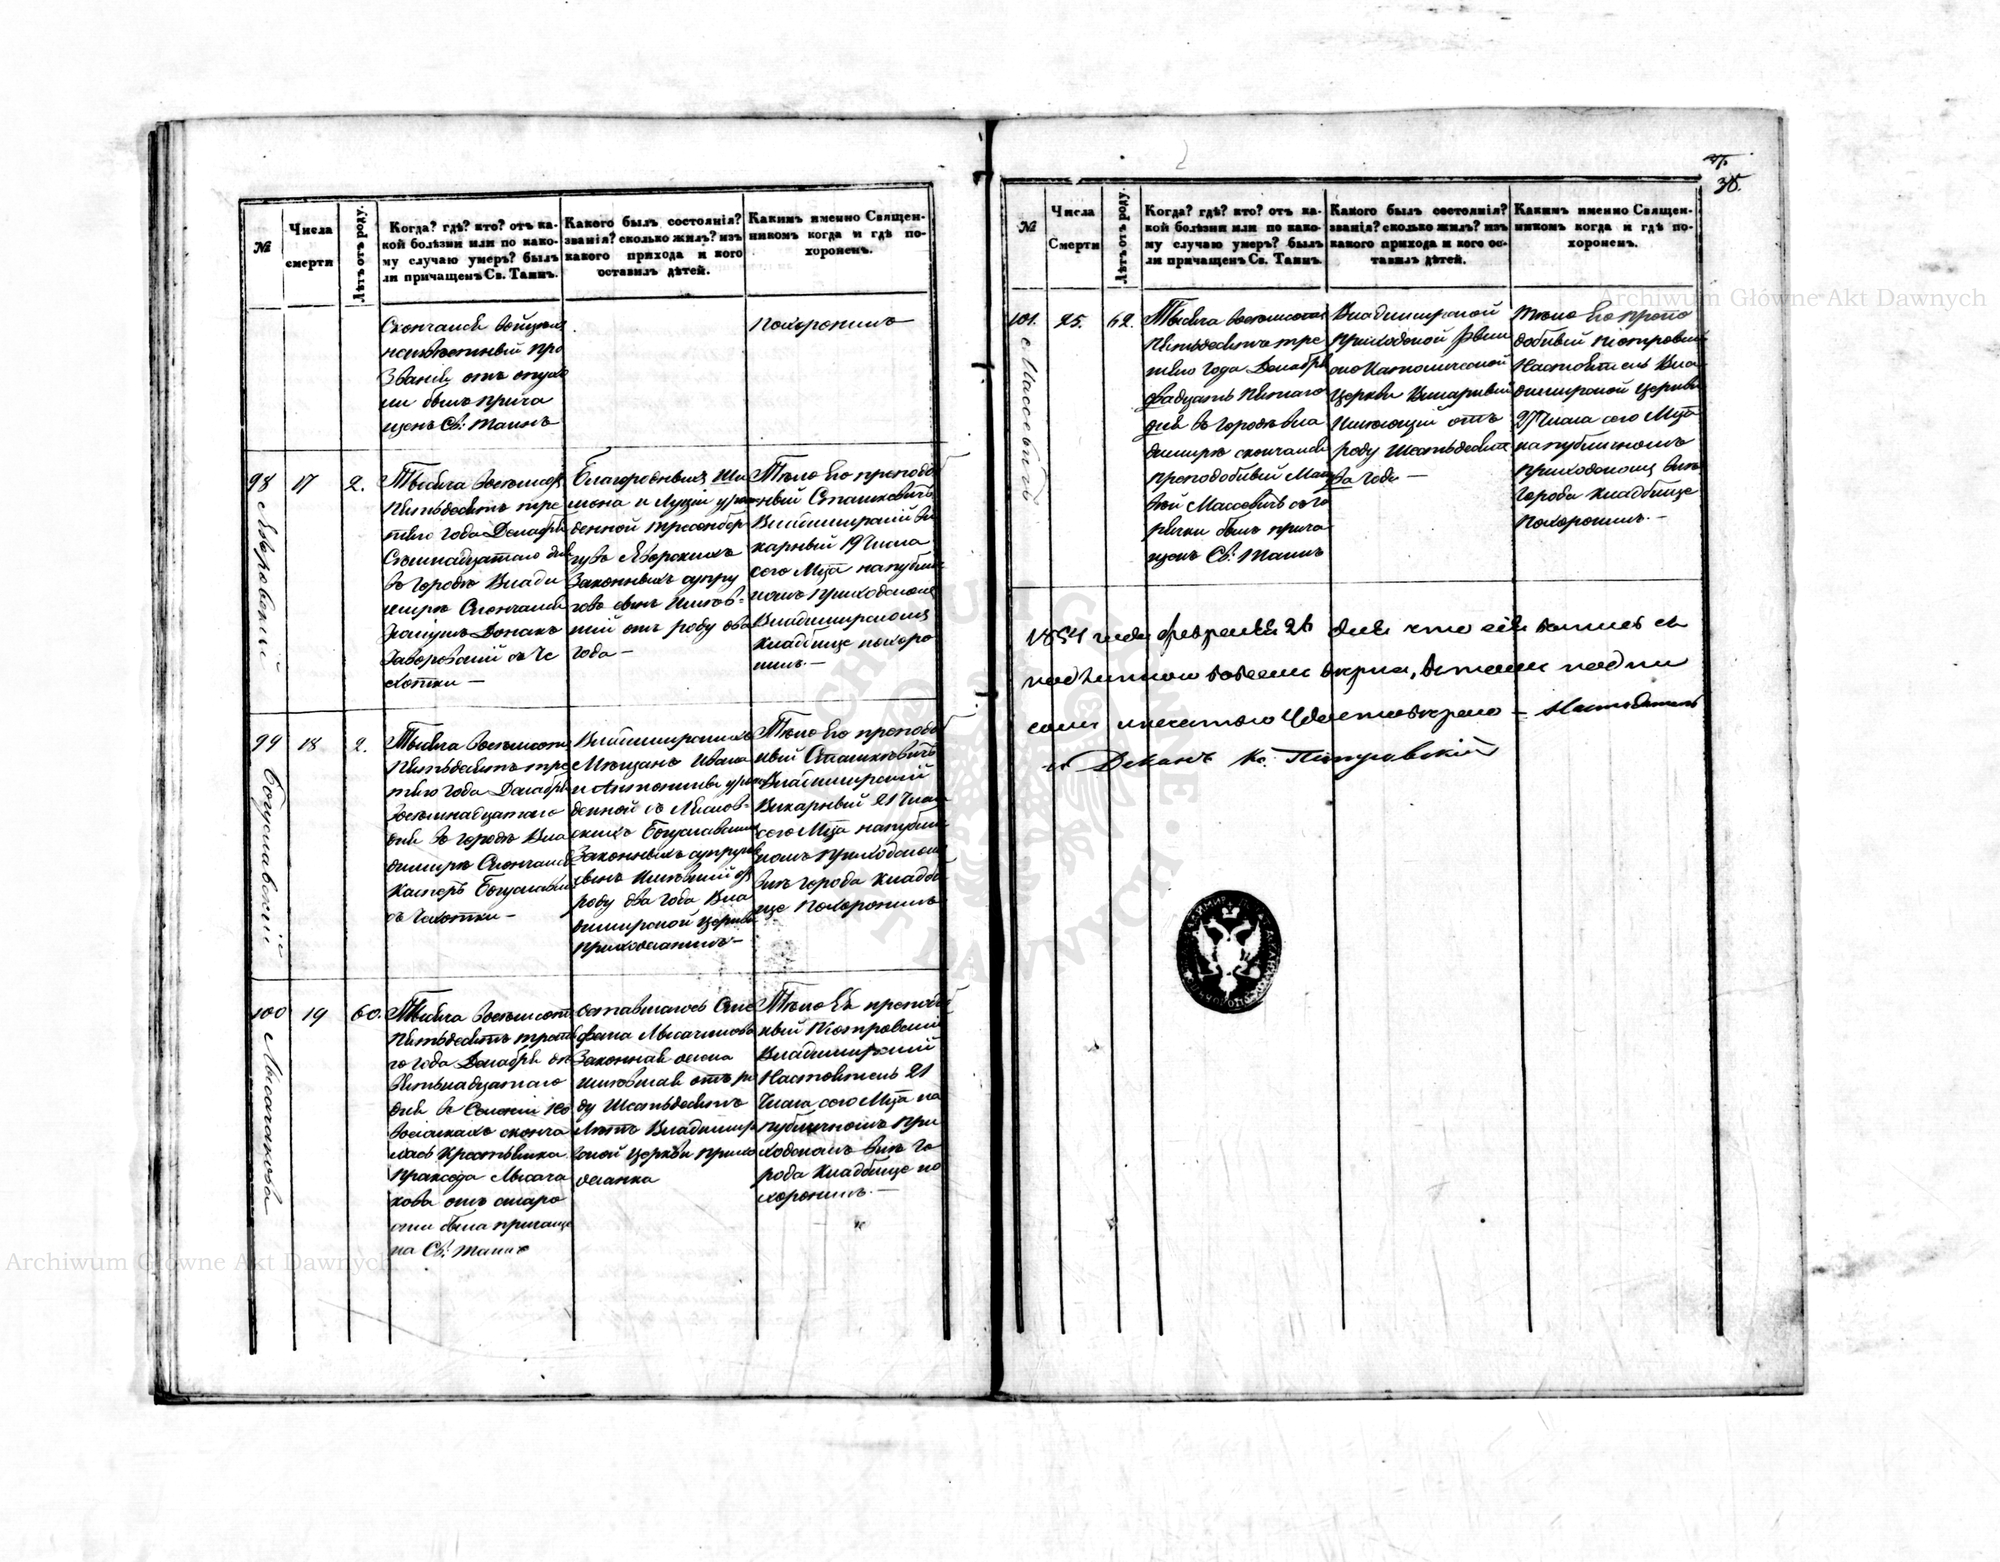 №
Числа
смерти
Лѣтъ отъ роду.
Когда? гдѣ? кто? отъ ка-
кой болѣзни или по како-
му случаю умеръ? былъ
ли причащенъ Св. Таинъ.
Какого былъ состоянія?
званія? сколько жилъ? изъ
какого прихода и кого
оставилъ дѣтей.
Какимъ именно Священ-
никомъ когда и гдѣ по-
хороненъ.
Скончался
неизвѣстный про
званія отъ опухо
ли былъ прича
щенъ Св: Таинъ
Похоронилъ
98
17
2.
Яворовскій
Тысяча восемсотъ
Пятьдесятъ тре
тяго года Декабря
Семнадцатаго дня
въ городѣ Влади
мирѣ Скончался
Яворовскій съ че
хотки —
Благородныхъ Ши
мона и Луціи уро
денной
Яворскихъ
Законныхъ супру
говъ сынъ Имѣв-
шій отъ роду два
года —
Тѣло Его преподо
бный Станкевичъ
Владимирскій Ви
карный 19 Числа
сего Мца на публич
номъ Приходскомъ
Владимирскомъ
кладбище похоро
нилъ. —
99
18
2.
Богуславскій
Тысяча восемсотъ
Пятьдесятъ тре
тяго года Декабря
Восемнадцатаго
дня въ городѣ Вла
димирѣ Скончался
Касперъ Богуславскій
съ Чахотки —
Владимирскихъ
Мѣщанъ Ивана
и Антонины уро
денной съ
Богуславскихъ
Законныхъ супруговъ
сынъ Имѣвшій отъ
роду два года Вла
димирской Церкви
Прихожанинъ —
Тѣло Его преподо
бный Станкевичъ
Владимирскій
Викарный 21 Числа
сего Мца на публич
номъ Приходскомъ
внѣ города кладби
ще Похоронилъ
100
19
60.
Лысачакова
Тысяча восемсотъ
Пятьдесятъ третя
го года Декабря де
вятьнадцатаго
дня въ Селеніи
сконча
лась Крестьянка
Праксeда Лысача
кова отъ старо
сти была причаще
на Св: Таинъ
оставшаяся Сте
фана Лысачакова
Законная жена
имѣвшая отъ ро
ду Шестьдесятъ
Лѣтъ Владимир
ской Церкви прихо
жанка
Тѣло Ея преподо
бный Піотровскій
Владимирскій
Настоятель 21
Числа сего Мца на
публичномъ При
ходскомъ внѣ го
рода кладбище по
хоронилъ. —
35.
№
Числа
Смерти
Лѣтъ отъ роду.
Когда? гдѣ? кто? отъ ка-
кой болѣзни или по како-
му случаю умеръ? былъ
ли причащенъ Св. Таинъ.
Какого былъ состоянія?
званія? сколько жилъ? изъ
какого прихода и кого ос-
тавилъ дѣтей.
Какимъ именно Священ-
никомъ когда и гдѣ по-
хороненъ.
101.
25.
62.
Массевичъ
Тысяча восемсотъ
Пятьдесятъ тре
тяго года Декабря
двадцать Пятаго
дня въ городѣ Вла
димирѣ скончался
преподобный Мат
вей Массевичъ съ го
рячки былъ прича
щенъ Св: Таинъ
Владимирской
Приходской Рим
ско Католической
Церкви Викарный
Имѣющій отъ
роду Шестьдесятъ
два года —
Тѣло Его препо
добный Піотровскій
Настоятель Вла
димирской Церкви
27 Числа сего Мца
на публичномъ
Приходскомъ внѣ
города кладбище
Похоронилъ. —
1854 года февраля 26 дня что сія запись съ
подлинною во всемъ вѣрна, въ томъ подпи
сомъ и печатью Удостовѣряю — Настоятель
и Деканъ Кс. Піотровскій
Archiwum Główne Akt Dawnych
Archiwum Główne Akt Dawnych